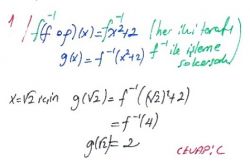 1/ f⁻¹(f o g)(x) = f⁻¹(x²+2) (her iki tarafı
g(x) = f⁻¹(x²+2) f⁻¹ ile işleme
sokarsak)
x=√2 için g(√2) = f⁻¹((√2)²+2)
= f⁻¹(4)
g(√2) = 2
CEVAP: C